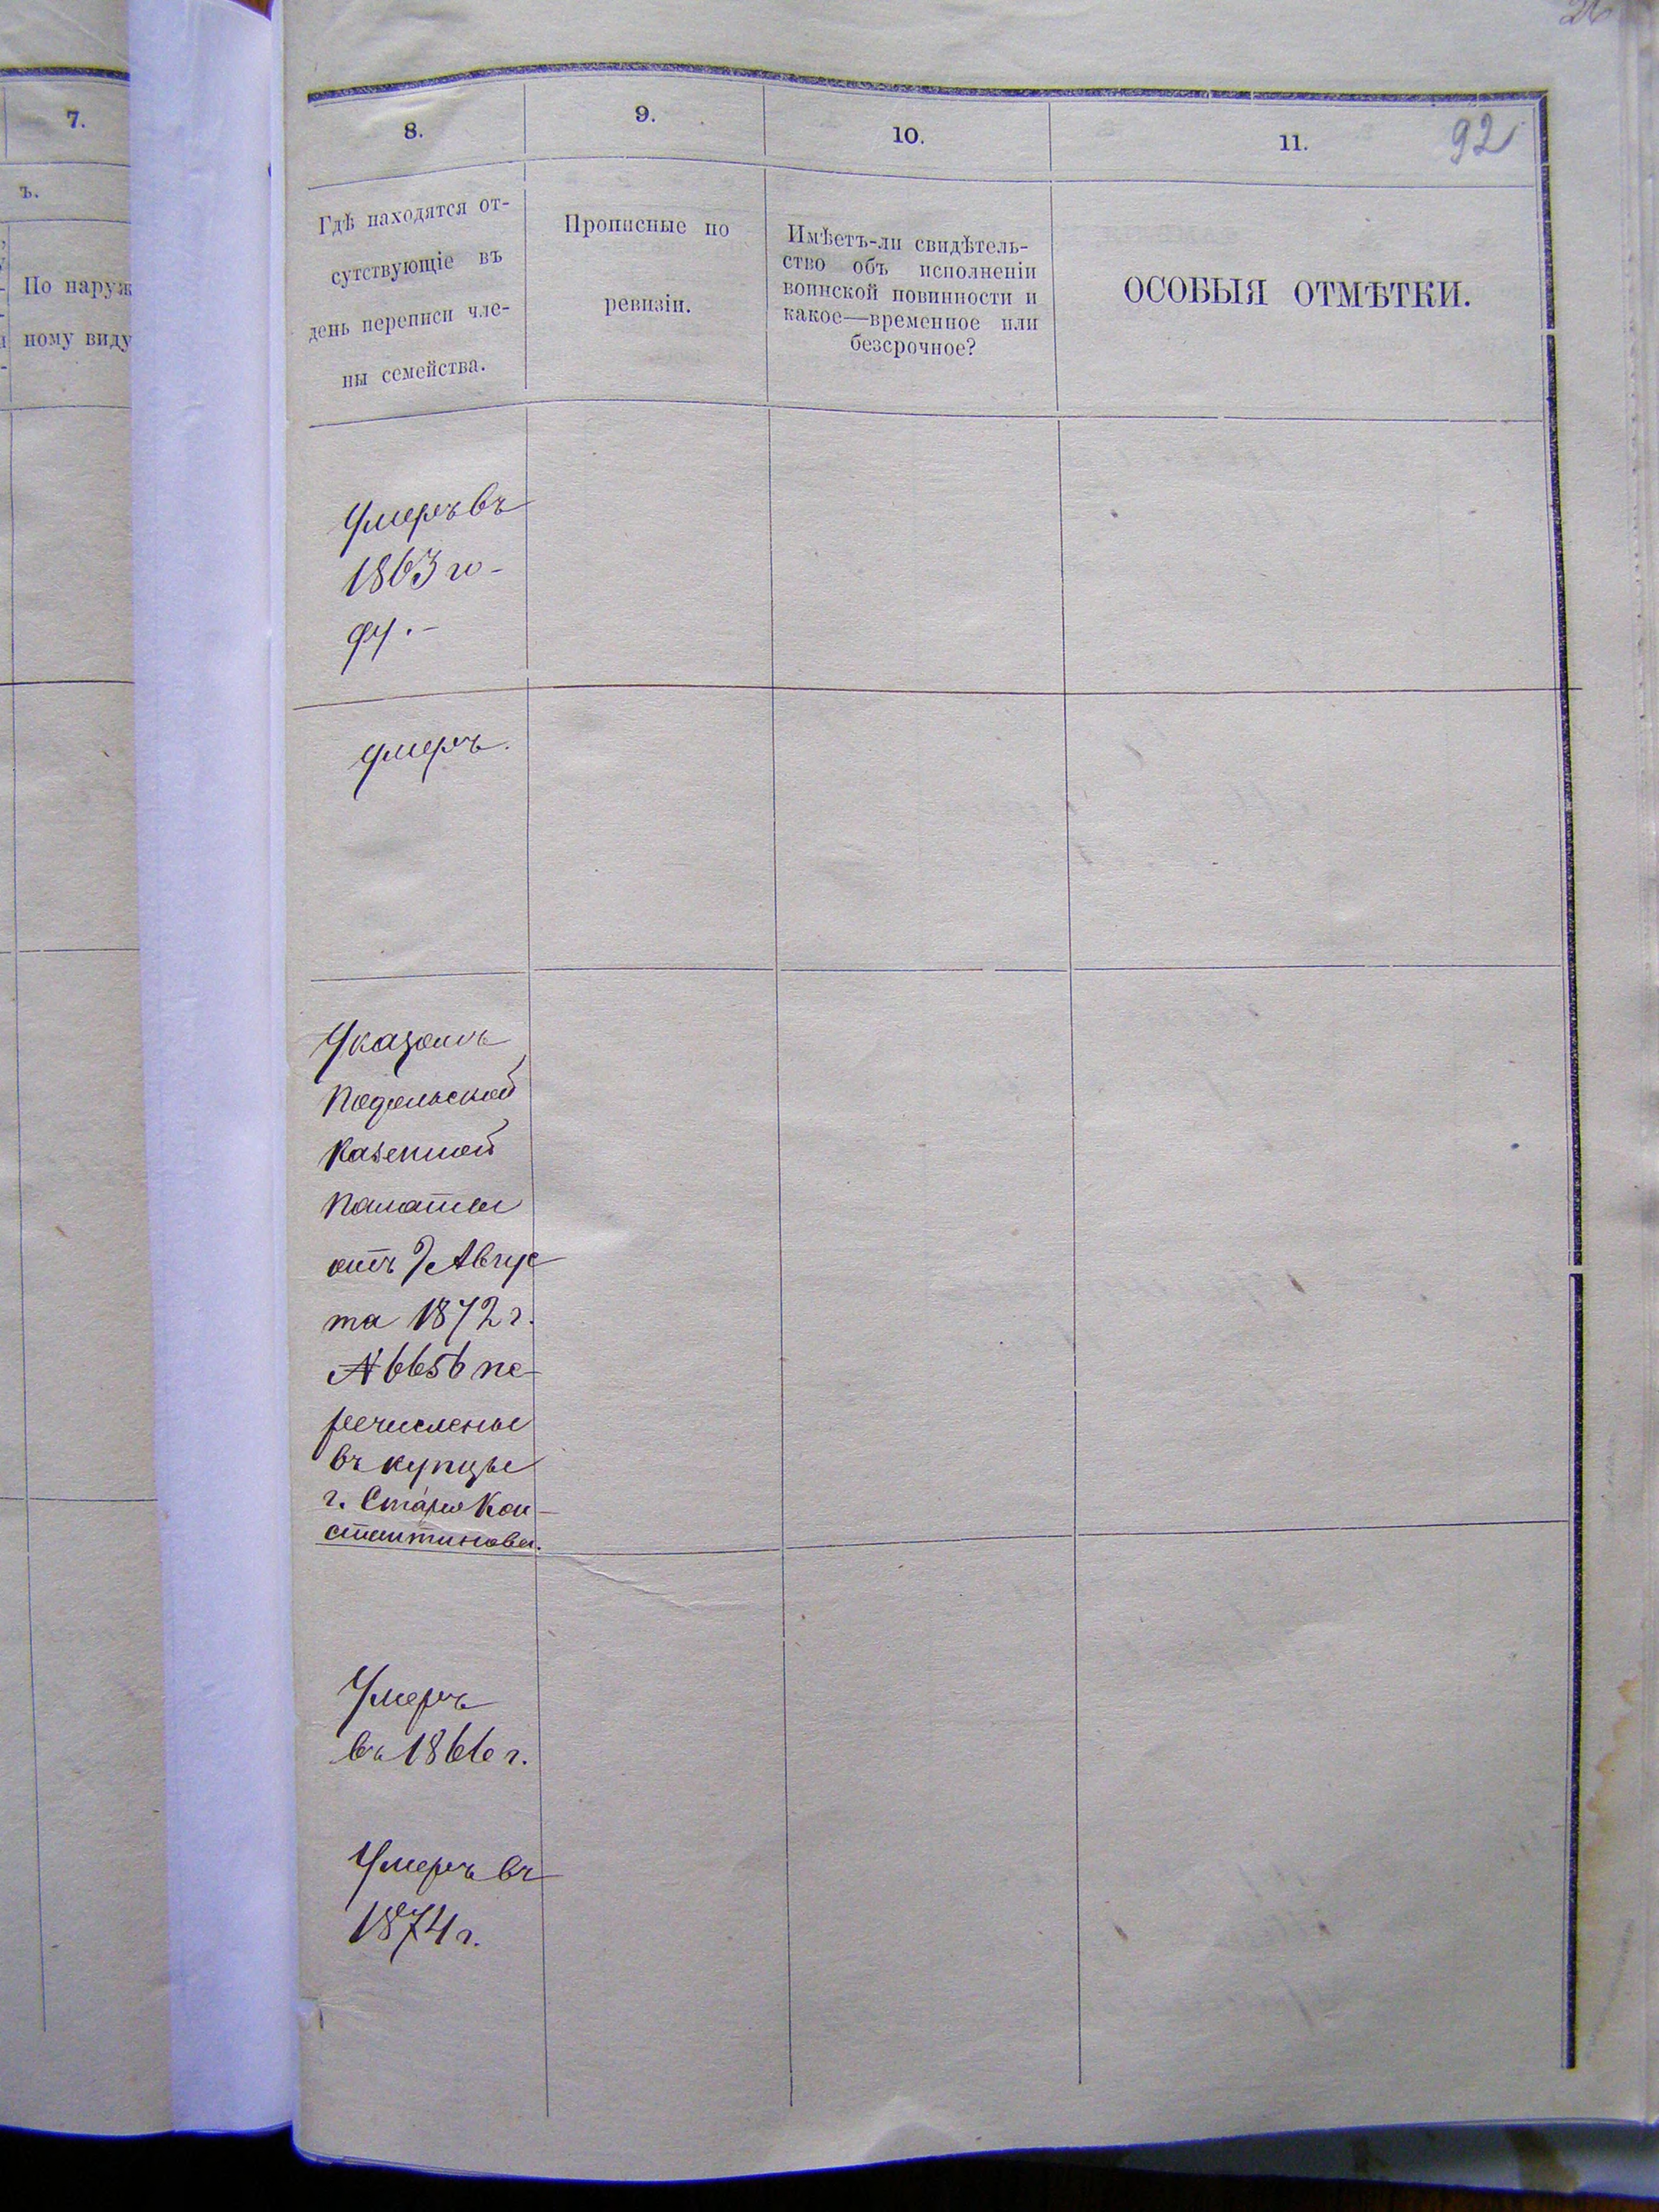 7.
ъ.
По наруж
ному виду
92
8.
9.
10.
11.
Гдѣ находятся от-
сутствующіе въ
день переписи чле-
ны семейства.
Прописные по
ревизіи.
Имѣетъ-ли свидѣтель-
ство объ исполненіи
воинской повинности и
какое—временное или
безсрочное?
ОСОБЫЯ ОТМѢТКИ.
Умеръ въ
1863 го-
ду.-
умеръ.
Указомъ
Подольской
Казенной
Палаты
отъ Авгус
та 1872 г.
№ 6656 пе-
речислены
въ купцы
г. Старо Кон-
стантинова.
Умеръ
въ 1866 г.
Умеръ въ
1874 г.